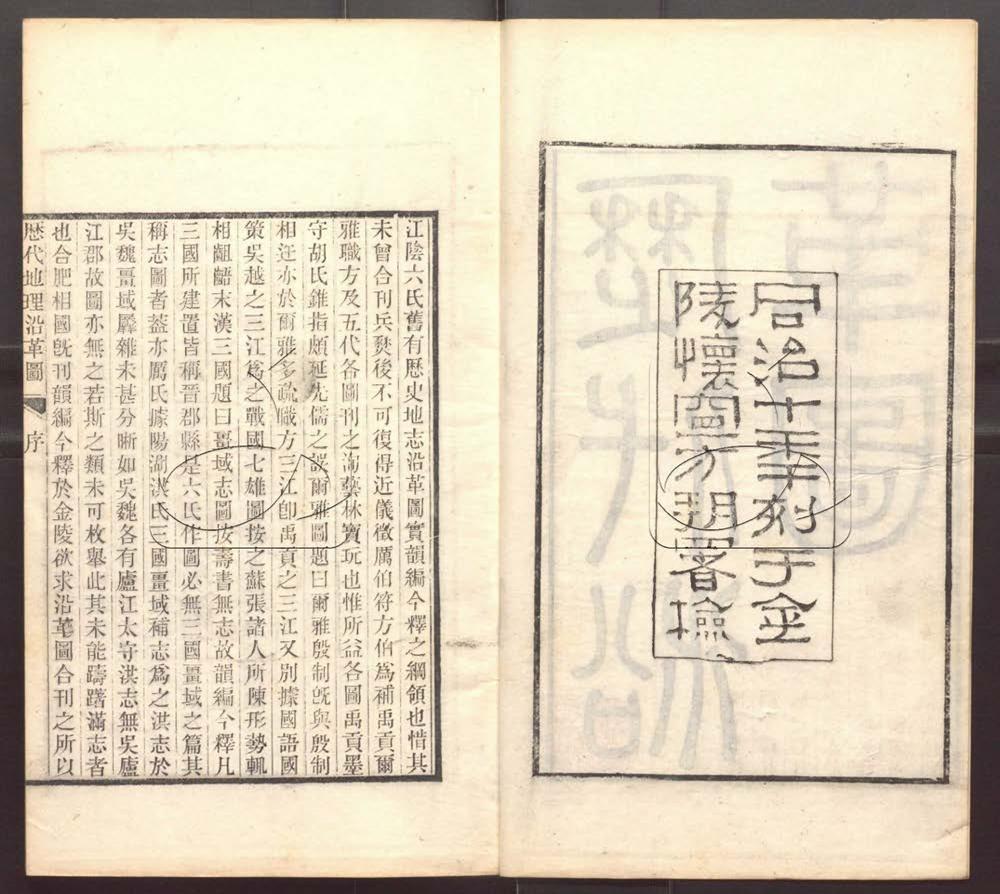 同治十年刻于金
陵懷寧方朔署檢
江陰六氏舊有歷史地志沿革圖實韻編今釋之綱領也惜其
未曾合刊兵燹後不可復得近儀徵厲伯符方伯爲補禹貢爾
雅職方及五代各圖刊之洵藝林寶玩也惟所益各圖禹貢墨
守胡氏錐指頗延先儒之誤爾雅圖題曰爾雅殷制旣與殷制
相迕亦於爾雅多疏職方三江卽禹貢之三江又別據國語國
策吳越之三江爲之戰國七雄圖按之蘇張諸人所陳形勢輒
相齟齬末漢三國題曰畺域志圖按壽書無志故韻編今釋凡
三國所建置皆稱晉郡縣是六氏作圖必無三國畺域之篇其
稱志圖者葢亦厲氏據陽湖洪氏三國畺域補志爲之洪志於
吳魏畺域羼雜未甚分晰如吳魏各有廬江太守洪志無吳廬
江郡故圖亦無之若斯之類未可枚舉此其未能躊躇滿志者
也合肥相國旣刊韻編今釋於金陵欲求沿革圖合刊之所以
歷代地理沿革圖 序